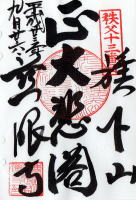 秩父十三番
旗下山
正大悲閣
慈眼寺
平成廿三年
九月廿六日